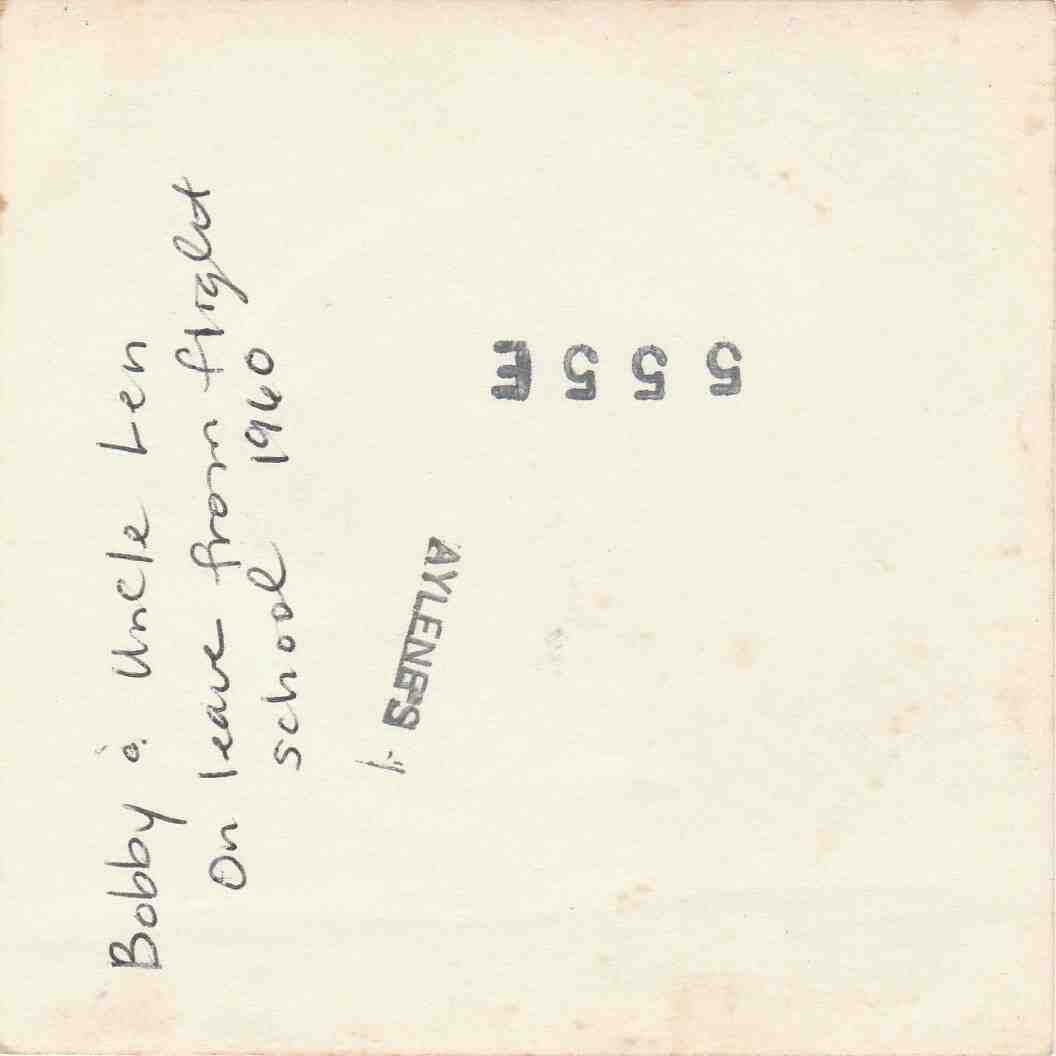 Bobby & Uncle Len
On leave from flight
school 1960
AYLENE'S
555E